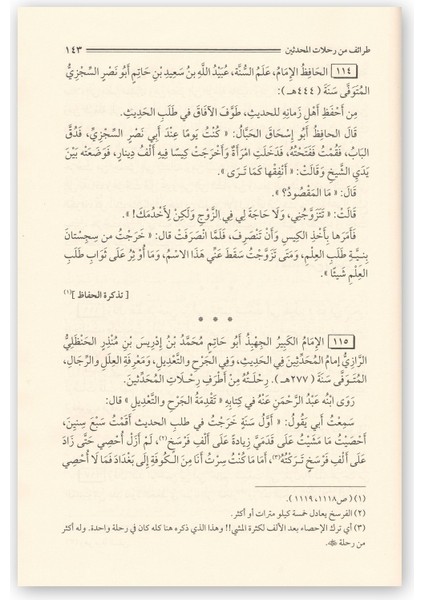 طرائف من رحلات المحدثين ١٤٣
١١٤ الحَافِظُ الإِمَامُ، عَلَمُ السُّنَّة، عُبَيْدُ اللَّهِ بنُ سَعِيدِ بْنِ حَاتِمٍ أَبُو نَصْرٍ السِّجْزِيُّ
المُتَوَفَّى سَنَةَ ( ٤٤٤هـ ):
مِن أَحْفَظِ أَهْلِ زَمَانِهِ للحديثِ، طَوَّفَ الآفَاقَ فِي طَلَبِ الحَدِيثِ.
قَالَ الحافِظُ أَبُو إِسْحَاقَ الحَبَّالُ: « كُنْتُ يَومًا عِنْدَ أَبِي نَصْرٍ السِّجْزِيِّ، فَدُقَّ
البَابُ، فَقُمْتُ فَفَتَحْتُهُ، فَدَخَلَتِ امْرَأَةٌ وَأَخْرَجَتْ كِيسًا فِيهِ أَلْفُ دِينَارٍ، فَوَضَعَتْهُ بَيْنَ
يَدَيِ الشَّيْخِ وَقَالَتْ: « أَنْفِقْهَا كَمَا تَرَى ».
قَالَ: « مَا المَقْصُودُ؟ ».
قَالَتْ: « تَتَزَوَّجُنِي، وَلَا حَاجَةَ لِي فِي الزَّوْجِ وَلَكِنْ لِأَخْدُمَكَ! ».
فَأَمَرَهَا بِأَخْذِ الكِيسِ وَأَنْ تَنْصَرِفَ، فَلَمَّا انْصَرَفَتْ قال: « خَرَجْتُ من سِجِسْتَانَ
بِنِيَّةِ طَلَبِ العِلْمِ، وَمَتَى تَزَوَّجْتُ سَقَطَ عَنِّي هَذَا الاسْمُ، وَمَا أُوثِرُ عَلَى ثَوَابِ طَلَبِ
العِلْمِ شَيئًا ».
[ تذكرة الحفاظ ](١)
* * *
١١٥ الإِمَامُ الكَبِيرُ الجِهْبِذُ أَبُو حَاتِمٍ مُحَمَّدُ بْنُ إِدْرِيسَ بْنِ مُنْذِرٍ الحَنْظَلِيُّ
الرَّازِيُّ إِمامُ المُحَدِّثِينَ فِي الحَدِيثِ، وَفِي الجَرْحِ وَالتَّعْدِيلِ، وَمَعْرِفَةِ العِلَلِ وَالرِّجَالِ،
المُتَوَفَّى سَنَةَ ( ٢٧٧هـ ). رِحْلَتُهُ مِنْ أَطْرَفِ رِحْلَاتِ المُحَدِّثِينَ.
رَوَى ابْنُهُ عَبْدُ الرَّحْمَنِ عَنْهُ فِي كِتَابِهِ « تَقْدِمَةُ الجَرْحِ وَالتَّعْدِيلِ » قال:
سَمِعْتُ أَبِي يَقُولُ: « أَوَّلُ سَنَةٍ خَرَجْتُ فِي طَلَبِ الحديث أَقَمْتُ سَبْعَ سِنِينَ،
أَحْصَيْتُ مَا مَشَيْتُ عَلَى قَدَمَيَّ زِيادةً عَلَى أَلْفِ فَرْسَخٍ(٢)، لَمْ أَزَلْ أُحْصِي حَتَّى زَادَ
عَلَى أَلْفِ فَرْسَخٍ تَرَكْتُهُ(٣)، أَمَا مَا كُنْتُ سِرْتُ أَنَا مِنَ الكُوفَةِ إِلَى بَغْدَادَ فَمَا لَا أُحْصِي
(١) ( ص١١١٨، ١١١٩ ).
(٢) الفرسخ يعادل خمسة كيلو مترات أو أكثر.
(٣) أي ترك الإحصاء بعد الألف لكثرة المشي!! وهذا الذي ذكره هنا كله كان في رحلة واحدة. وله أكثر
من رحلة